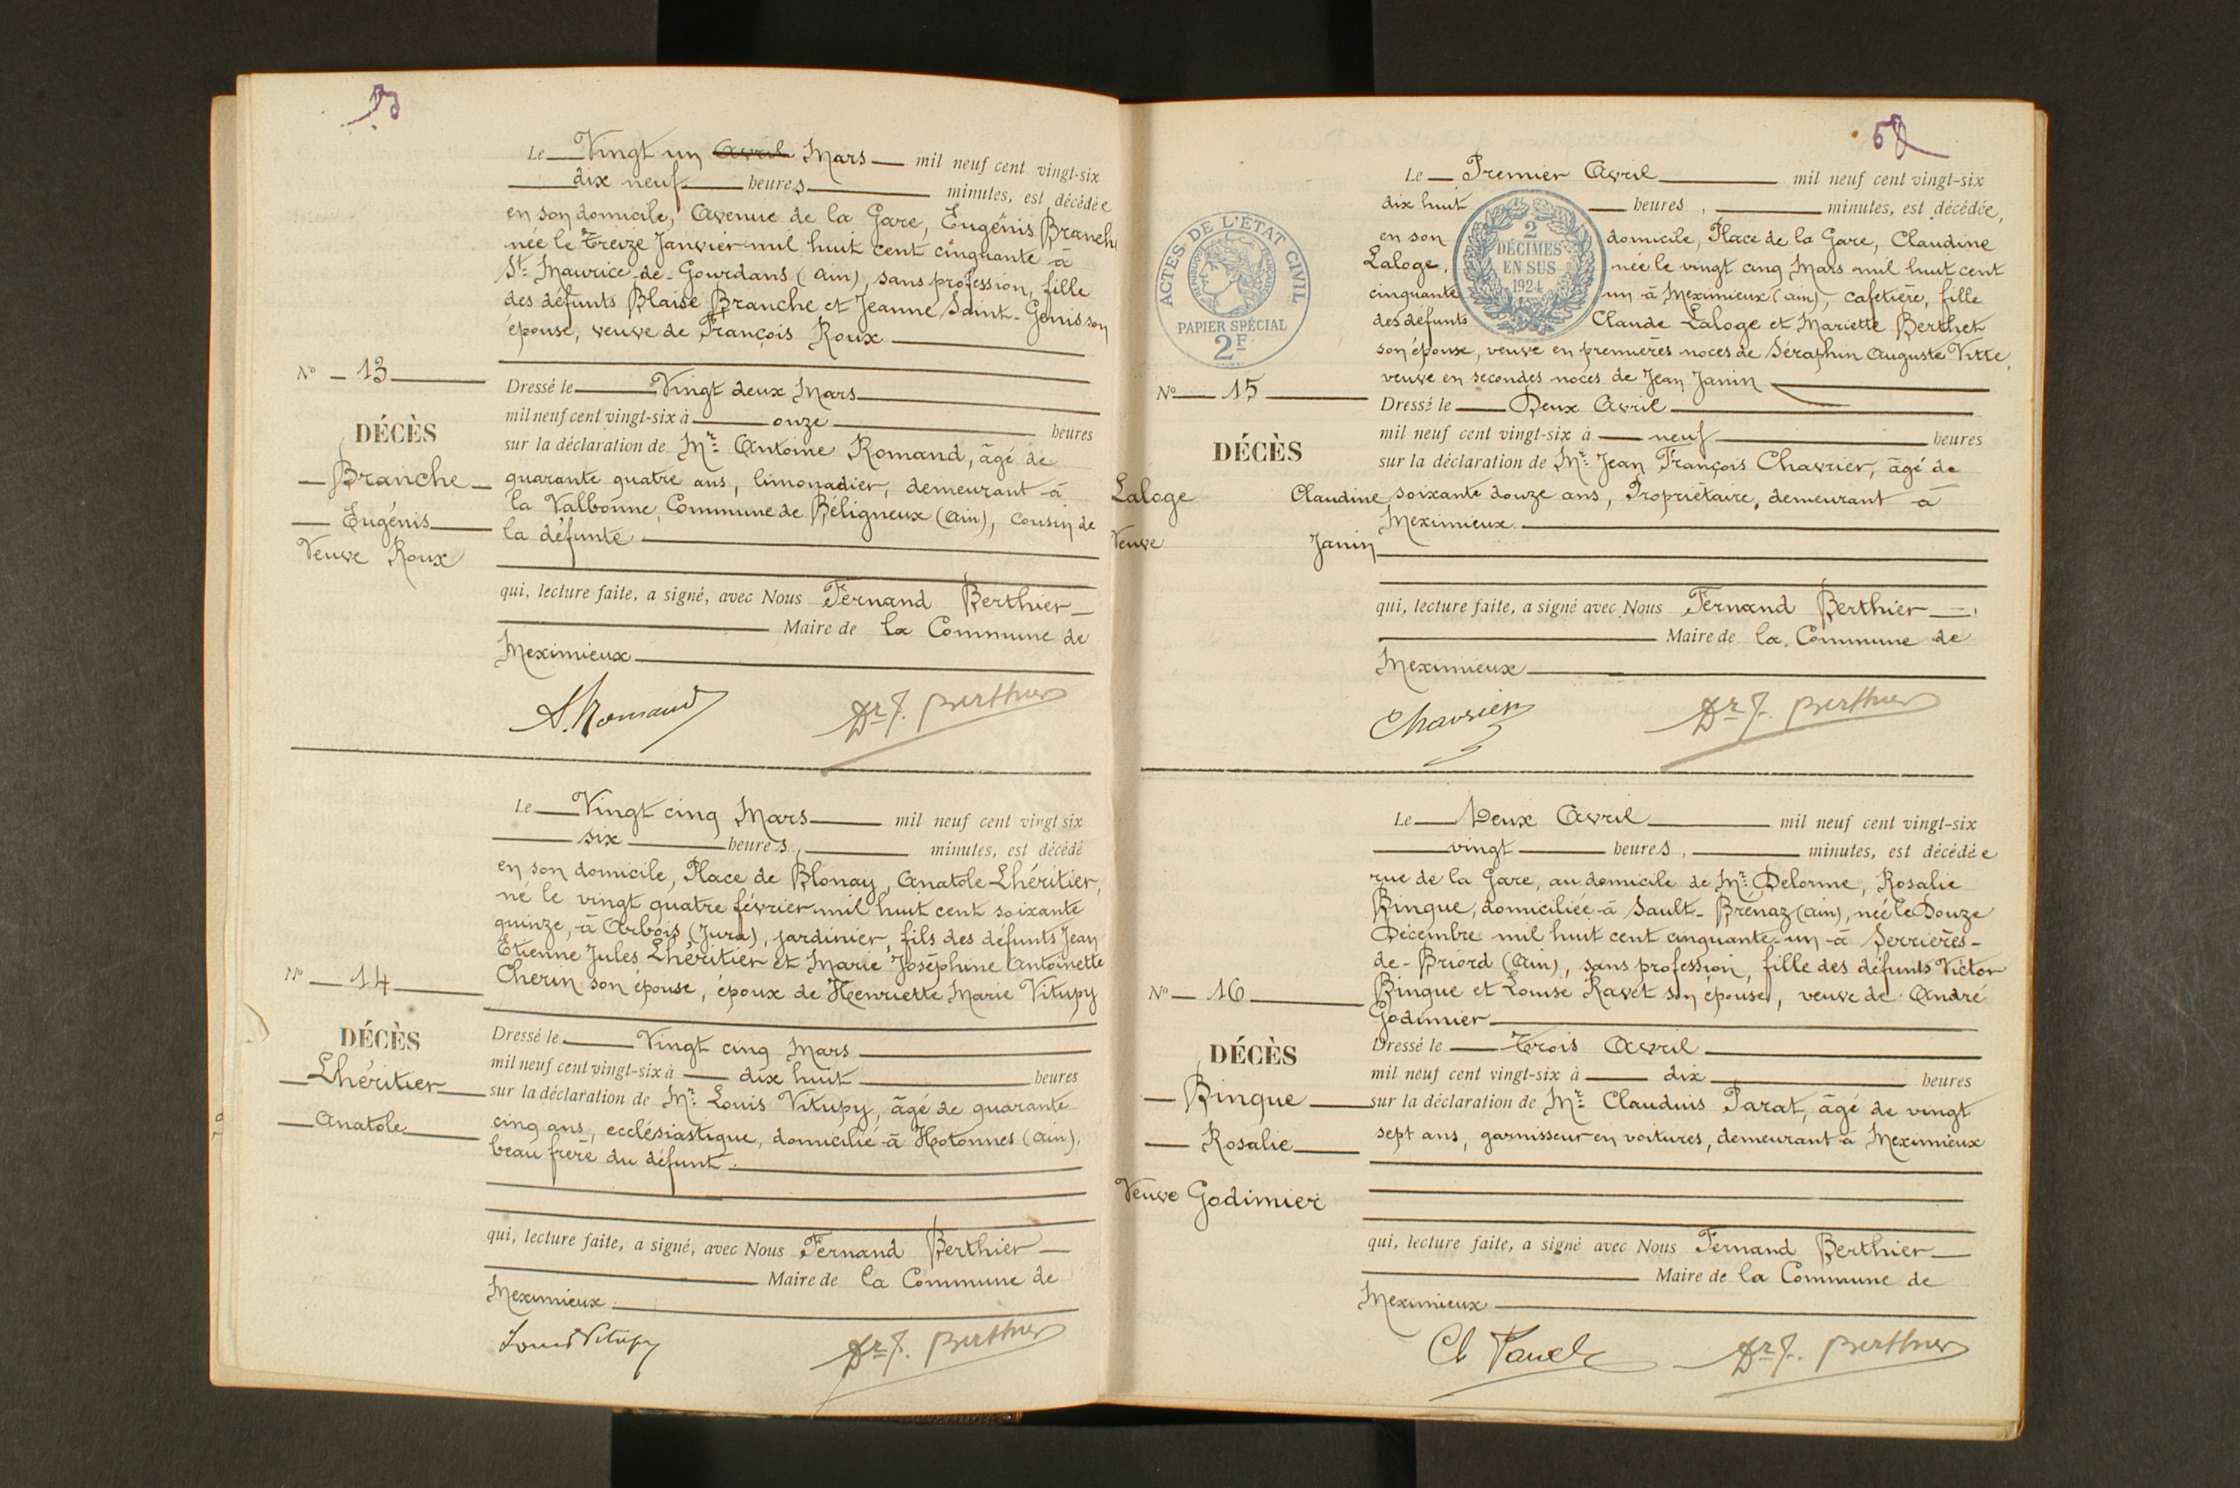 Le Vingt un Avril Mars mil neuf cent vingt-six
dix neuf heures minutes, est décédée
en son domicile, Avenue de la Gare, Eugénis Branche
née le treize Janvier mil huit cent cinquante à
St Maurice-de-Gourdans (Ain), sans profession, fille
des défunts Blaise Branche et Jeanne Saint-Genis son
épouse, veuve de François Roux
N° 13
DÉCÈS
Branche
Eugénis
Veuve Roux
Dressé le Vingt deux Mars
mil neuf cent vingt-six à onze heures
sur la déclaration de Mr Antoine Romand, âgé de
quarante quatre ans, limonadier, demeurant à
la Valbonne, Commune de Béligneux (Ain), cousin de
la défunte
qui, lecture faite, a signé, avec Nous Fernand Berthier
Maire de la Commune de
Meximieux
A. Romand Dr F. Berthier
Le Vingt cinq Mars mil neuf cent vingt six
six heures, minutes, est décédé
en son domicile, Place de Blonay, Anatole Lhéritier,
né le vingt quatre février mil huit cent soixante
quinze, à Arbois (Jura), jardinier, fils des défunts Jean
Etienne Jules Lhéritier et Marie Joséphine Antoinette
Cherin son épouse, époux de Henriette Marie Vitupy
N° 14
DÉCÈS
Lhéritier
Anatole
Dressé le Vingt cinq Mars
mil neuf cent vingt-six à dix huit heures
sur la déclaration de Mr Louis Vitupy, âgé de quarante
cinq ans, ecclésiastique, domicilié à Hotonnes (Ain),
beau frère du défunt.
qui, lecture faite, a signé, avec Nous Fernand Berthier
Maire de la Commune de
Meximieux
Louis Vitupy Dr F. Berthier
Le Premier Avril mil neuf cent vingt-six
dix huit heures, minutes, est décédée,
en son domicile, Place de la Gare, Claudine
Laloge, née le vingt cinq Mars mil huit cent
cinquante un à Meximieux (Ain), cafetière, fille
des défunts Claude Laloge et Mariette Berthet
son épouse, veuve en premières noces de Séraphin Auguste Vitte,
veuve en secondes noces de Jean Janin
ACTES DE L'ÉTAT CIVIL
PAPIER SPÉCIAL
2F
2
DÉCIMES
EN SUS
1924
N° 15
DÉCÈS
Laloge Claudine
Veuve Janin
Dressé le Deux Avril
mil neuf cent vingt-six à neuf heures
sur la déclaration de Mr Jean François Chavrier, âgé de
soixante douze ans, Propriétaire, demeurant à
Meximieux
qui, lecture faite, a signé avec Nous Fernand Berthier
Maire de la Commune de
Meximieux
Chavrier Dr F. Berthier
Le Deux Avril mil neuf cent vingt-six
vingt heures, minutes, est décédée
rue de la Gare, au domicile de Mr Delorme, Rosalie
Binque, domiciliée à Sault-Brénaz (Ain), née le Douze
Décembre mil huit cent cinquante-un à Serrières-
de-Briord (Ain), sans profession, fille des défunts Victor
Binque et Louise Ravet son épouse, veuve de André
Godimier
N° 16
DÉCÈS
Binque
Rosalie
Veuve Godimier
Dressé le Trois Avril
mil neuf cent vingt-six à dix heures
sur la déclaration de Mr Claudius Parat, âgé de vingt
sept ans, garnisseur en voitures, demeurant à Meximieux
qui, lecture faite, a signé avec Nous Fernand Berthier
Maire de la Commune de
Meximieux
Dr F. Berthier